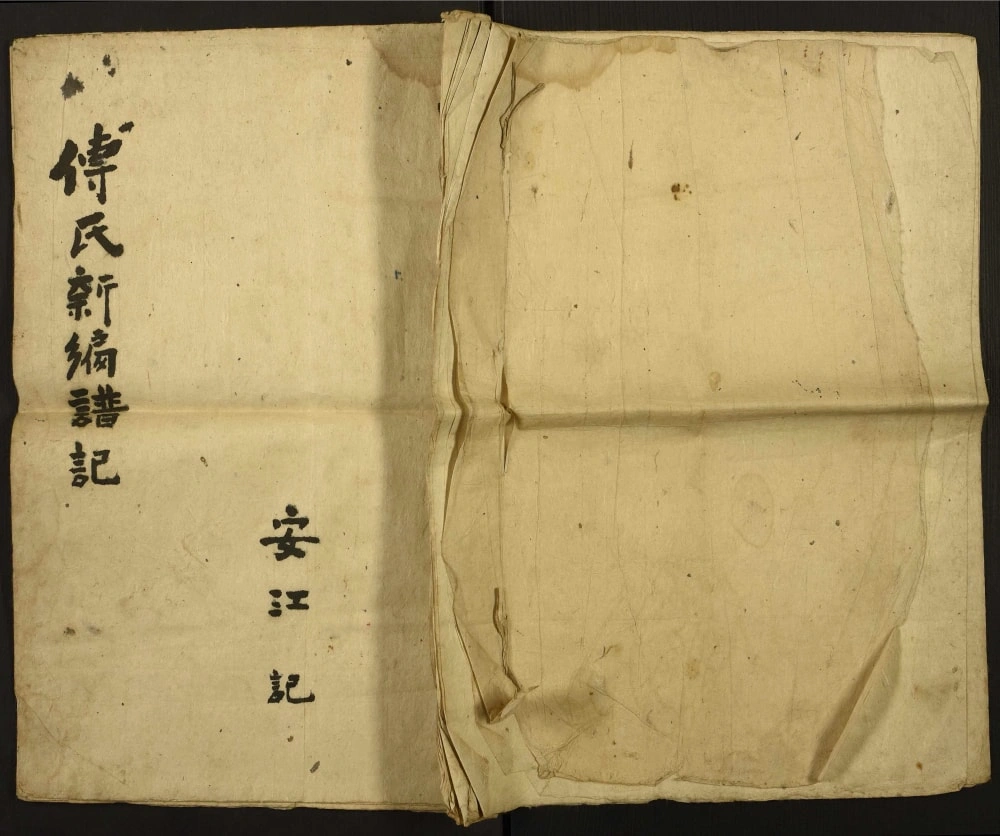 傅氏新編譜記
安江記